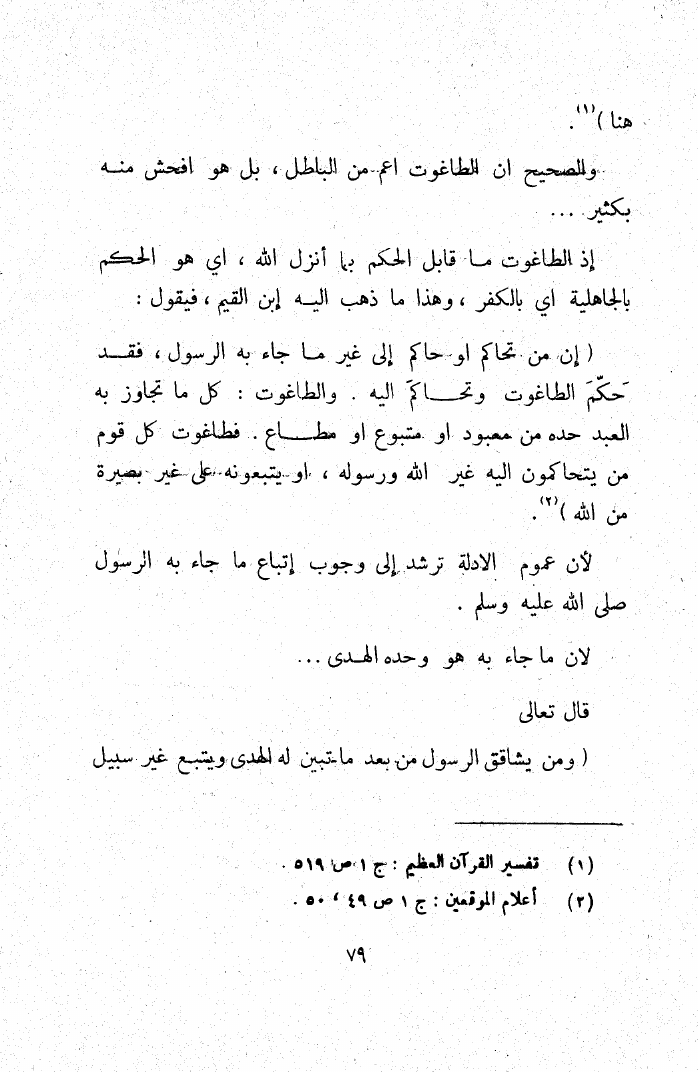 هنا )(١).
والصحيح ان الطاغوت اعم من الباطل ، بل هو افحش منه
بكثير ...
إذ الطاغوت ما قابل الحكم بما أنزل الله ، اي هو الحكم
بالجاهلية اي بالكفر ، وهذا ما ذهب اليه إبن القيم ، فيقول :
( إن من تحاكم او حاكم إلى غير ما جاء به الرسول ، فقد
حَكّمَ الطاغوت وتحاكمَ اليه . والطاغوت : كل ما تجاوز به
العبد حده من معبود او متبوع او مطاع . فطاغوت كل قوم
من يتحاكمون اليه غير الله ورسوله ، او يتبعونه على غير بصيرة
من الله )(٢).
لأن عموم الادلة ترشد إلى وجوب إتباع ما جاء به الرسول
صلى الله عليه وسلم .
لان ما جاء به هو وحده الهدى ...
قال تعالى
( ومن يشاقق الرسول من بعد ما تبين له الهدى ويتبع غير سبيل
(١) تفسير القرآن العظيم : ج ١ ص ٥١٩ .
(٢) أعلام الموقعين : ج ١ ص ٤٩ ، ٥٠ .
٧٩